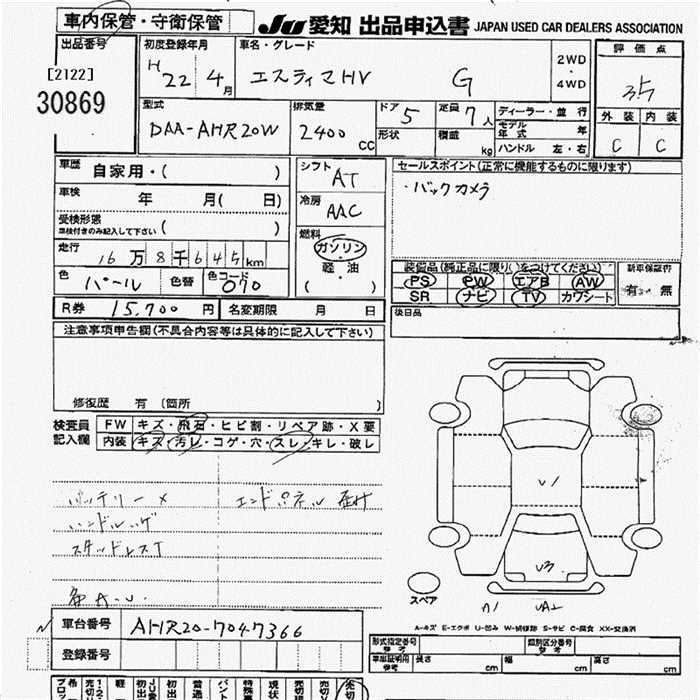 車内保管・守衛保管
JU 愛知 出品申込書 JAPAN USED CAR DEALERS ASSOCIATION
出品番号
[2122]
30869
初度登録年月
H22 4月
車名・グレード
エスティマHV G
2WD・4WD
評価点
3.5
外装 内装
C C
型式
DAA-AHR20W
排気量
2400 CC
ドア 5
形状
定員 7人
積載 kg
ディーラー・並行
モデル年式 年
ハンドル 左・右
車歴 自家用・( )
車検 年 月( 日)
受検形態
車検付きのみ記入して下さい ( )
走行 16万8千645km
色 パール 色替 色コード 070
シフト AT
冷房 AAC
燃料
ガソリン・軽油
( )
セールスポイント(正常に機能するものに限ります)
・バックカメラ
装備品(純正品に限り( )をつけてください)
PS PW エアB AW
SR ナビ TV カワシート
新車保証書
有・無
R券 15,700円 名変期限 月 日
後日品
注意事項申告欄(不具合内容等は具体的に記入して下さい)
修復歴 有(箇所 )
検査員記入欄
FW キズ・飛石・ヒビ割・リペア跡・X要
内装 キズ・汚レ・コゲ・穴・スレ・キレ・破レ
バッテリーX エンドパネル曲げ
ハンドルハゲ
スタッドレスT
U1
U3
スペア
A1 UA2
A-キズ E-エクボ U-凹み W-補修跡 S-サビ C-腐食 XX-交換済
車台番号 AHR20-7047366
登録番号
形式指定番号 参考
類別区分番号 参考
車車証明用 参考 長さ cm 幅 cm 高さ cm